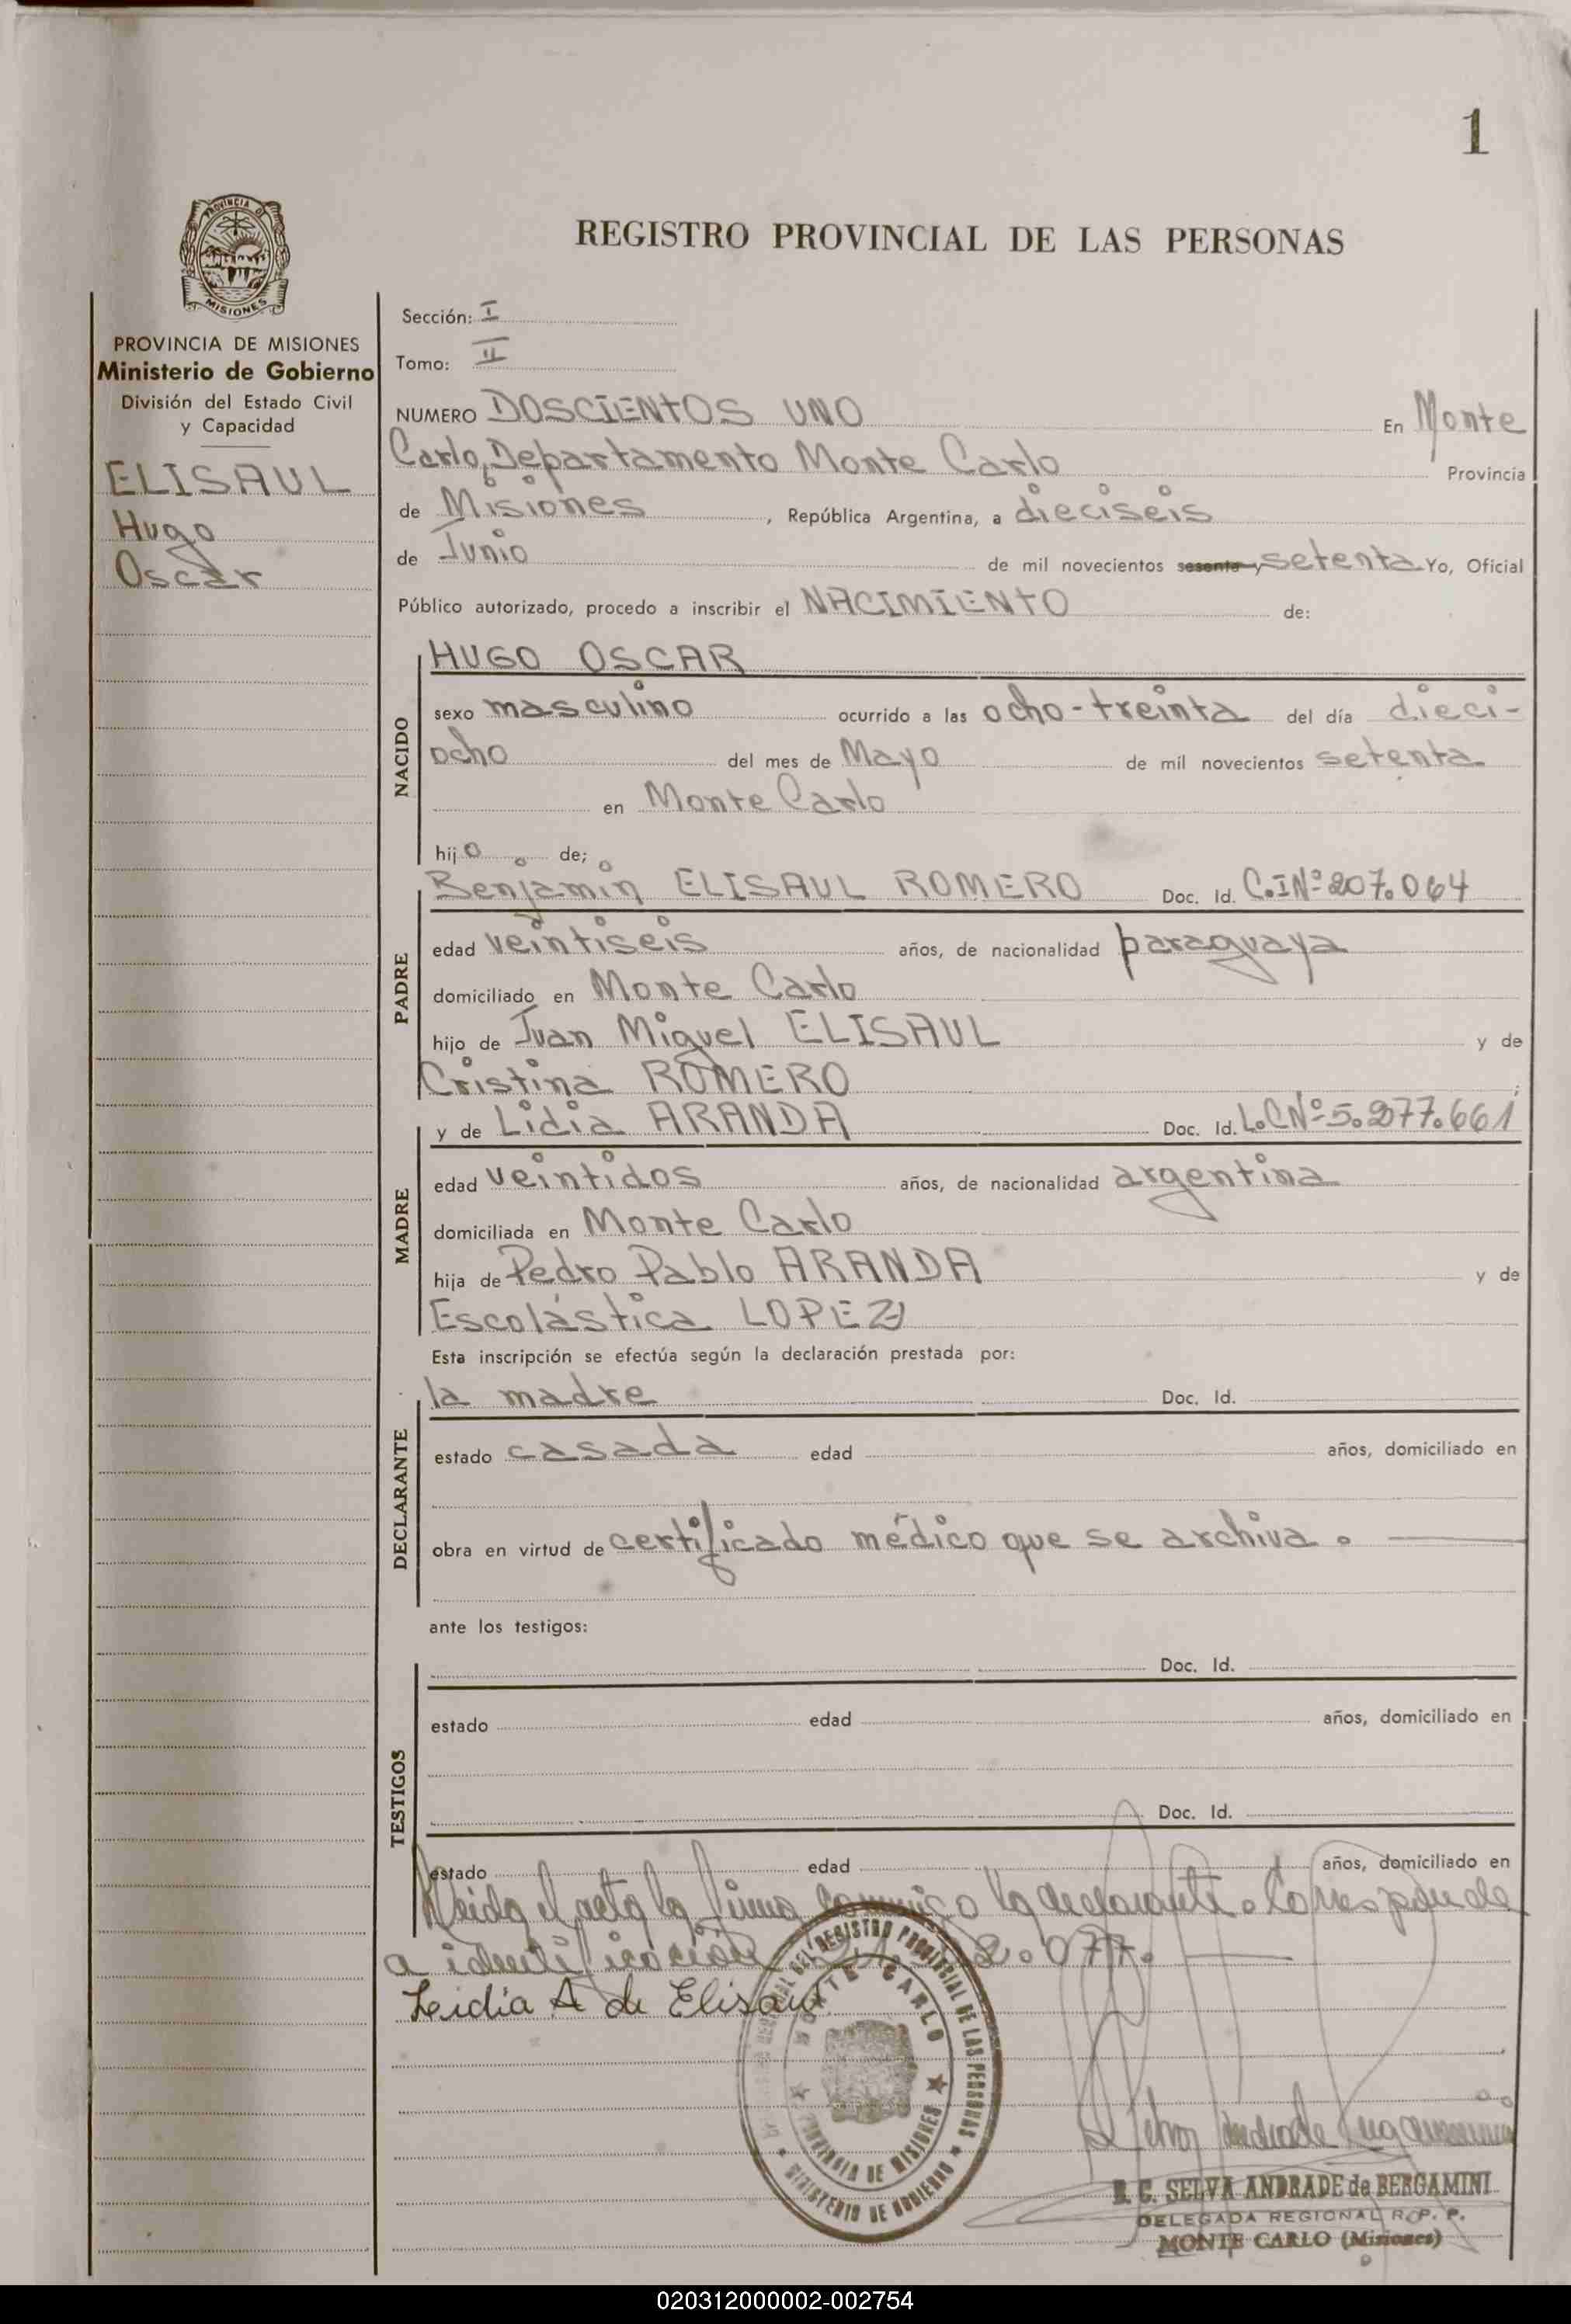 1
PROVINCIA DE
MISIONES
REGISTRO PROVINCIAL DE LAS PERSONAS
PROVINCIA DE MISIONES
Ministerio de Gobierno
División del Estado Civil
y Capacidad
ELISAUL
Hugo
Oscar
Sección: I
Tomo: II
NUMERO DOSCIENTOS UNO En Monte
Carlo, Departamento Monte Carlo Provincia
de Misiones, República Argentina, a dieciseis
de Junio de mil novecientos sesenta y setenta Yo, Oficial
Público autorizado, procedo a inscribir el NACIMIENTO de:
NACIDO
HUGO OSCAR
sexo masculino ocurrido a las ocho-treinta del día dieci-
ocho del mes de Mayo de mil novecientos setenta
en Monte Carlo
hijo de;
PADRE
Benjamin ELISAUL ROMERO Doc. Id. C.INº207.064
edad veintiseis años, de nacionalidad paraguaya
domiciliado en Monte Carlo
hijo de Juan Miguel ELISAUL y de
Cristina ROMERO
MADRE
y de Lidia ARANDA Doc. Id. L.CNº5.277.661
edad veintidos años, de nacionalidad argentina
domiciliada en Monte Carlo
hija de Pedro Pablo ARANDA y de
Escolástica LOPEZ
Esta inscripción se efectúa según la declaración prestada por:
DECLARANTE
la madre Doc. Id.
estado casada edad años, domiciliado en
obra en virtud de certificado médico que se archiva.
ante los testigos:
TESTIGOS
Doc. Id.
estado edad años, domiciliado en
Doc. Id.
estado edad años, domiciliado en
Leida el acta la firma conmigo la declarante. Corresponde
a identificación .077.
Leidia A de Elisaul
REGISTRO PROVINCIAL DE LAS PERSONAS
MONTE CARLO
PROVINCIA DE MISIONES
MINISTERIO DE GOBIERNO
SELVA ANDRADE de BERGAMINI
DELEGADA REGIONAL R. P. P.
MONTE CARLO (Misiones)
020312000002-002754